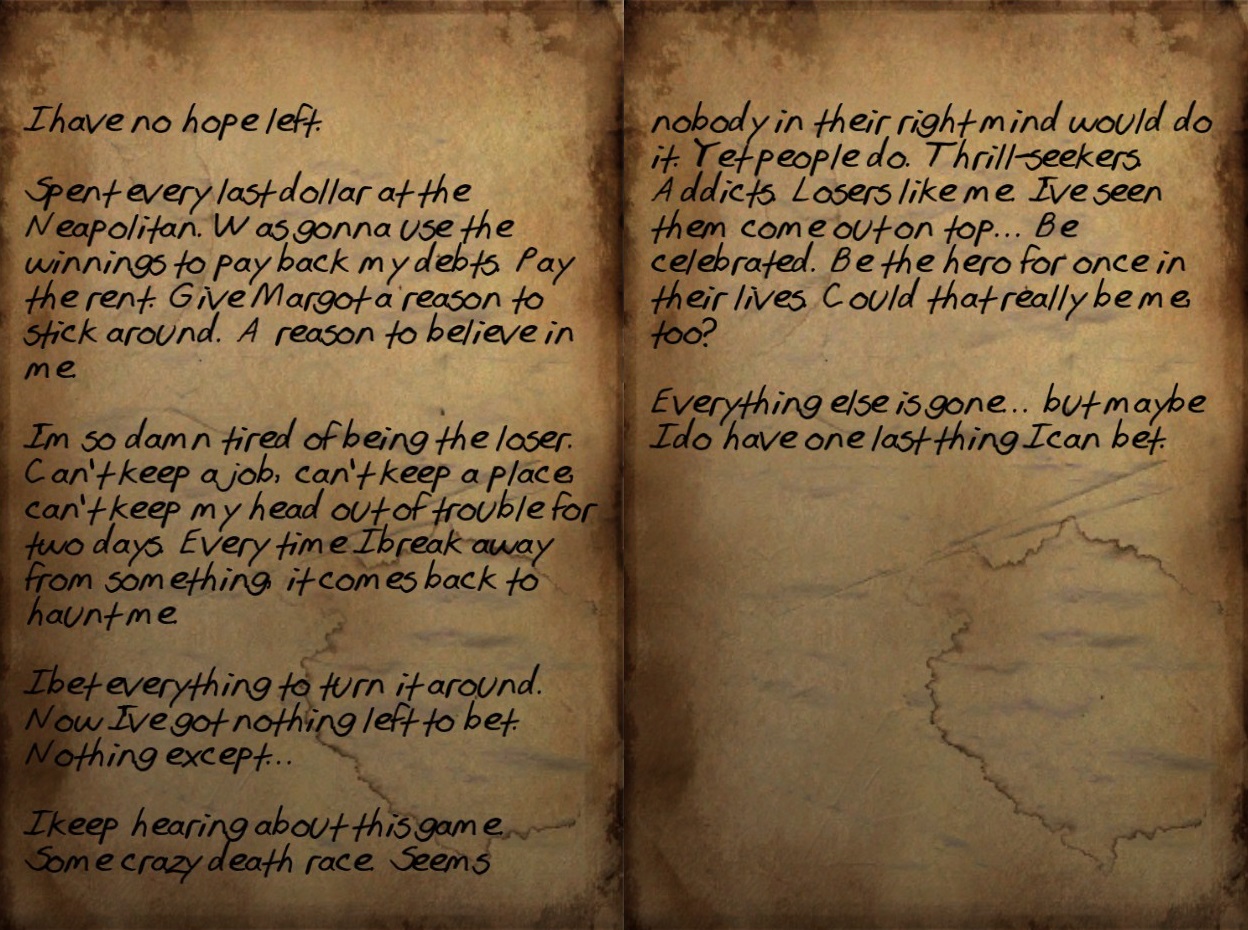 I have no hope left.
Spent every last dollar at the
Neapolitan. Was gonna use the
winnings to pay back my debts. Pay
the rent. Give Margot a reason to
stick around. A reason to believe in
me.
Im so damn tired of being the loser.
Can't keep a job, can't keep a place,
can't keep my head out of trouble for
two days. Every time I break away
from something, it comes back to
haunt me.
I bet everything to turn it around.
Now Ive got nothing left to bet.
Nothing except...
I keep hearing about this game.
Some crazy death race. Seems
nobody in their right mind would do
it. Yet people do. Thrill-seekers.
Addicts. Losers like me. Ive seen
them come out on top... Be
celebrated. Be the hero for once in
their lives. Could that really be me,
too?
Everything else is gone... but maybe
I do have one last thing I can bet.